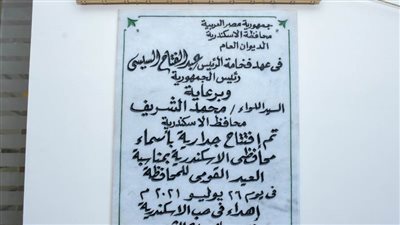 جمهورية مصر العربية
محافظة الاسكندرية
الديوان العام
فى عهد فخامة الرئيس/عبد الفتاح السيسى
رئيس الجمهورية
وبرعاية
السيد اللواء/ محمد الشريف
محافظ الاسكندرية
تم إفتتاح جدارية بأسماء
محافظى الاسكندرية بمناسبة
العيد القومى للمحافظة
فى يوم ٢٦ يوليو ٢٠٢١ م
إهداء فى حب الاسكندرية